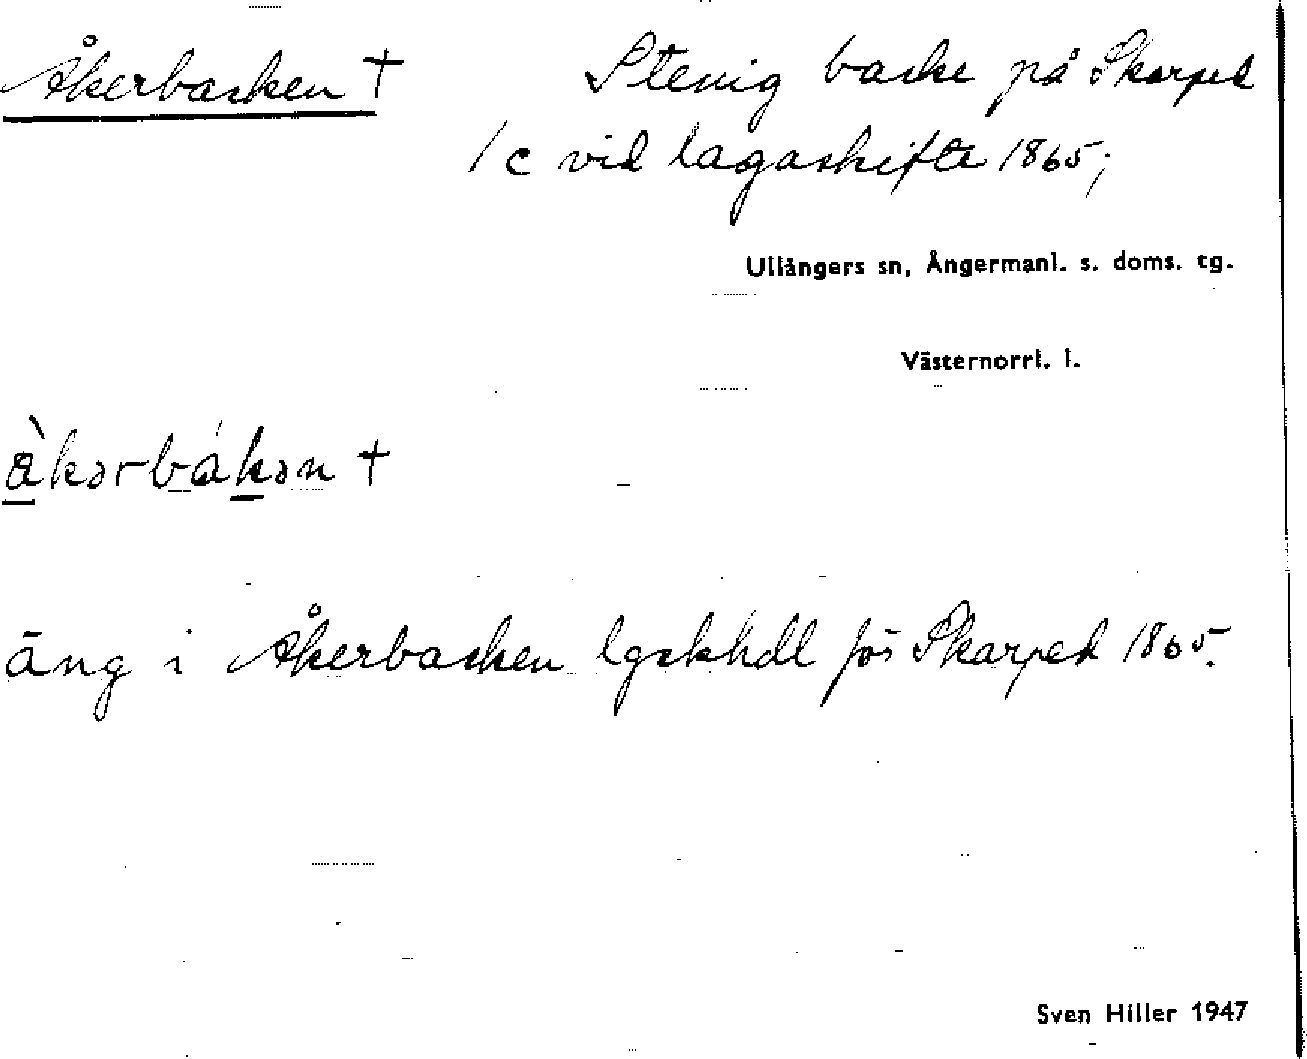 Åkerbacken † Stenig backe på Skarped
1c vid lagaskifte 1865;
Ullångers sn, Ångermanl. s. doms. tg.
Västernorrl. l.
àkərbákən †
äng i Åkerbacken lgskhdl för Skarped 1865.
Sven Hiller 1947